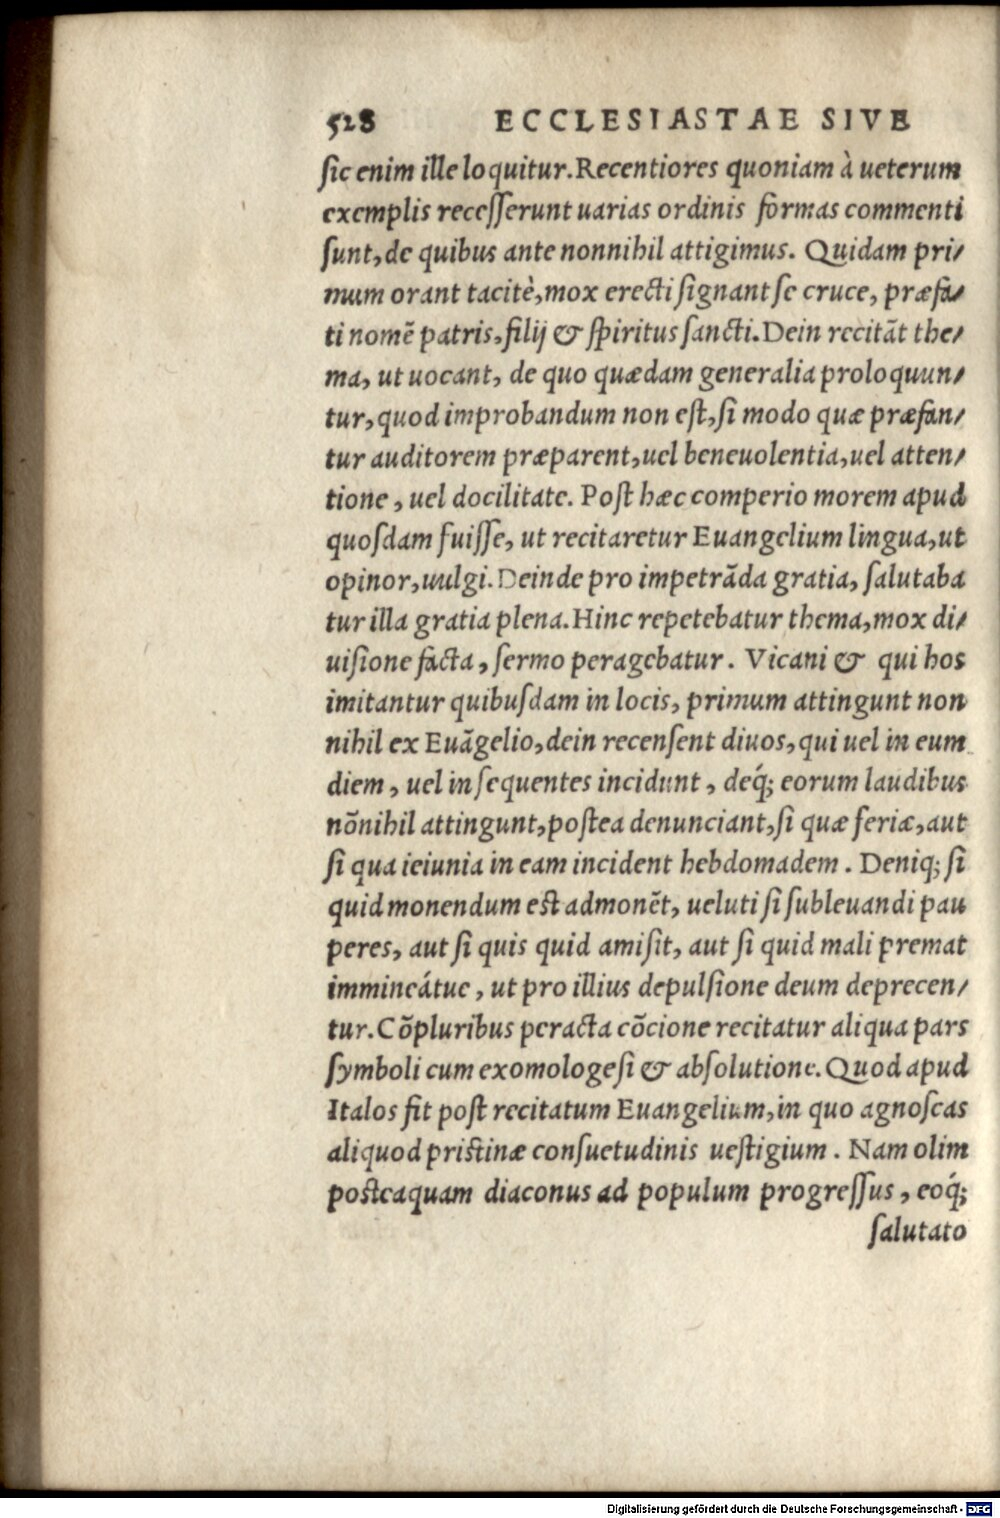 528 ECCLESIASTAE SIVE
sic enim ille loquitur. Recentiores quoniam à ueterum
exemplis recesserunt uarias ordinis formas commenti
sunt, de quibus ante nonnihil attigimus. Quidam pri/
mum orant tacitè, mox erecti signant se cruce, præfa/
ti nomē patris, filij & spiritus sancti. Dein recitāt the/
ma, ut uocant, de quo quædam generalia proloquun/
tur, quod improbandum non est, si modo quæ præfan/
tur auditorem præparent, uel beneuolentia, uel atten/
tione, uel docilitate. Post hæc comperio morem apud
quosdam fuisse, ut recitaretur Euangelium lingua, ut
opinor, uulgi. Deinde pro impetrāda gratia, salutaba
tur illa gratia plena. Hinc repetebatur thema, mox di/
uisione facta, sermo peragebatur. Vicani & qui hos
imitantur quibusdam in locis, primum attingunt non
nihil ex Euāgelio, dein recensent diuos, qui uel in eum
diem, uel in sequentes incidunt, deq́; eorum laudibus
nōnihil attingunt, postea denunciant, si quæ feriæ, aut
si qua ieiunia in eam incident hebdomadem. Deniq; si
quid monendum est admonēt, ueluti si subleuandi pau
peres, aut si quis quid amisit, aut si quid mali premat
immineátue, ut pro illius depulsione deum deprecen/
tur. Cōpluribus peracta cōcione recitatur aliqua pars
symboli cum exomologesi & absolutione. Quod apud
Italos fit post recitatum Euangelium, in quo agnoscas
aliquod pristinæ consuetudinis uestigium. Nam olim
posteaquam diaconus ad populum progressus, eoq́;
salutato
Digitalisierung gefördert durch die Deutsche Forschungsgemeinschaft - DFG